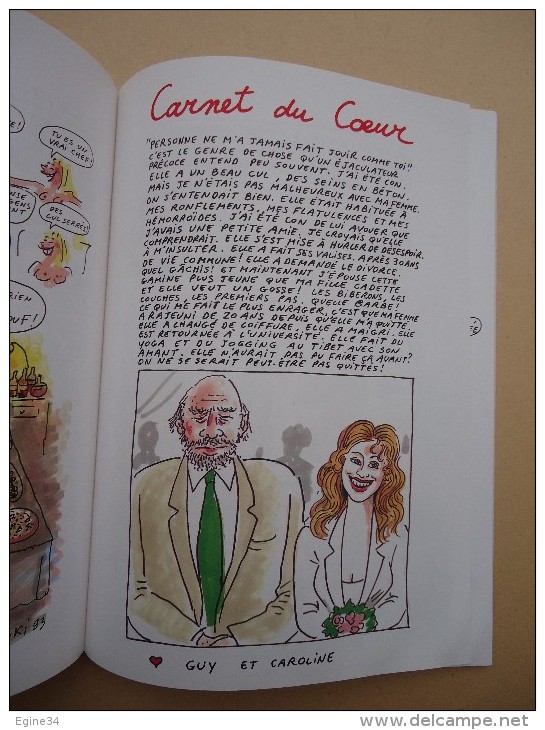 E!
TU ES UN
VRAI CHEF!
NSE
GENS
ENT
DES
CULSERRÉS!
RIEN
OUF!
KI 93
Carnet du Cœur
"PERSONNE NE M'A JAMAIS FAIT JOUIR COMME TOI!"
C'EST LE GENRE DE CHOSE QU'UN ÉJACULATEUR
PRÉCOCE ENTEND PEU SOUVENT. J'AI ÉTÉ CON.
ELLE A UN BEAU CUL, DES SEINS EN BÉTON.
MAIS JE N'ÉTAIS PAS MALHEUREUX AVEC MA FEMME.
ON S'ENTENDAIT BIEN. ELLE ÉTAIT HABITUÉE À
MES RONFLEMENTS, MES FLATULENCES ET MES
HÉMORROÏDES. J'AI ÉTÉ CON DE LUI AVOUER QUE
J'AVAIS UNE PETITE AMIE. JE CROYAIS QU'ELLE
COMPRENDRAIT. ELLE S'EST MISE À HURLER DE DÉSESPOIR.
À M'INSULTER. ELLE A FAIT SES VALISES. APRÈS 30 ANS
DE VIE COMMUNE! ELLE A DEMANDÉ LE DIVORCE.
QUEL GÂCHIS! ET MAINTENANT J'ÉPOUSE CETTE
GAMINE PLUS JEUNE QUE MA FILLE CADETTE
ET ELLE VEUT UN GOSSE! LES BIBERONS, LES
COUCHES, LES PREMIERS PAS. QUELLE BARBE!
CE QUI ME FAIT LE PLUS ENRAGER, C'EST QUE MA FEMME
A RAJEUNI DE 20 ANS DEPUIS QU'ELLE M'A QUITTÉ.
ELLE A CHANGÉ DE COIFFURE. ELLE A MAIGRI. ELLE
EST RETOURNÉE À L'UNIVERSITÉ. ELLE FAIT DU
YOGA ET DU JOGGING AU TIBET AVEC SON
AMANT. ELLE N'AURAIT PAS PU FAIRE ÇA AVANT?
ON NE SE SERAIT PEUT-ÊTRE PAS QUITTÉS!
GUY ET CAROLINE
Egine34
www.delcampe.net